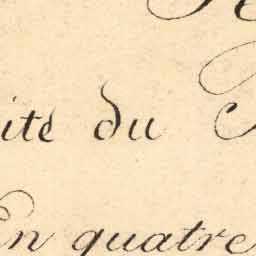 ité du
En quatre